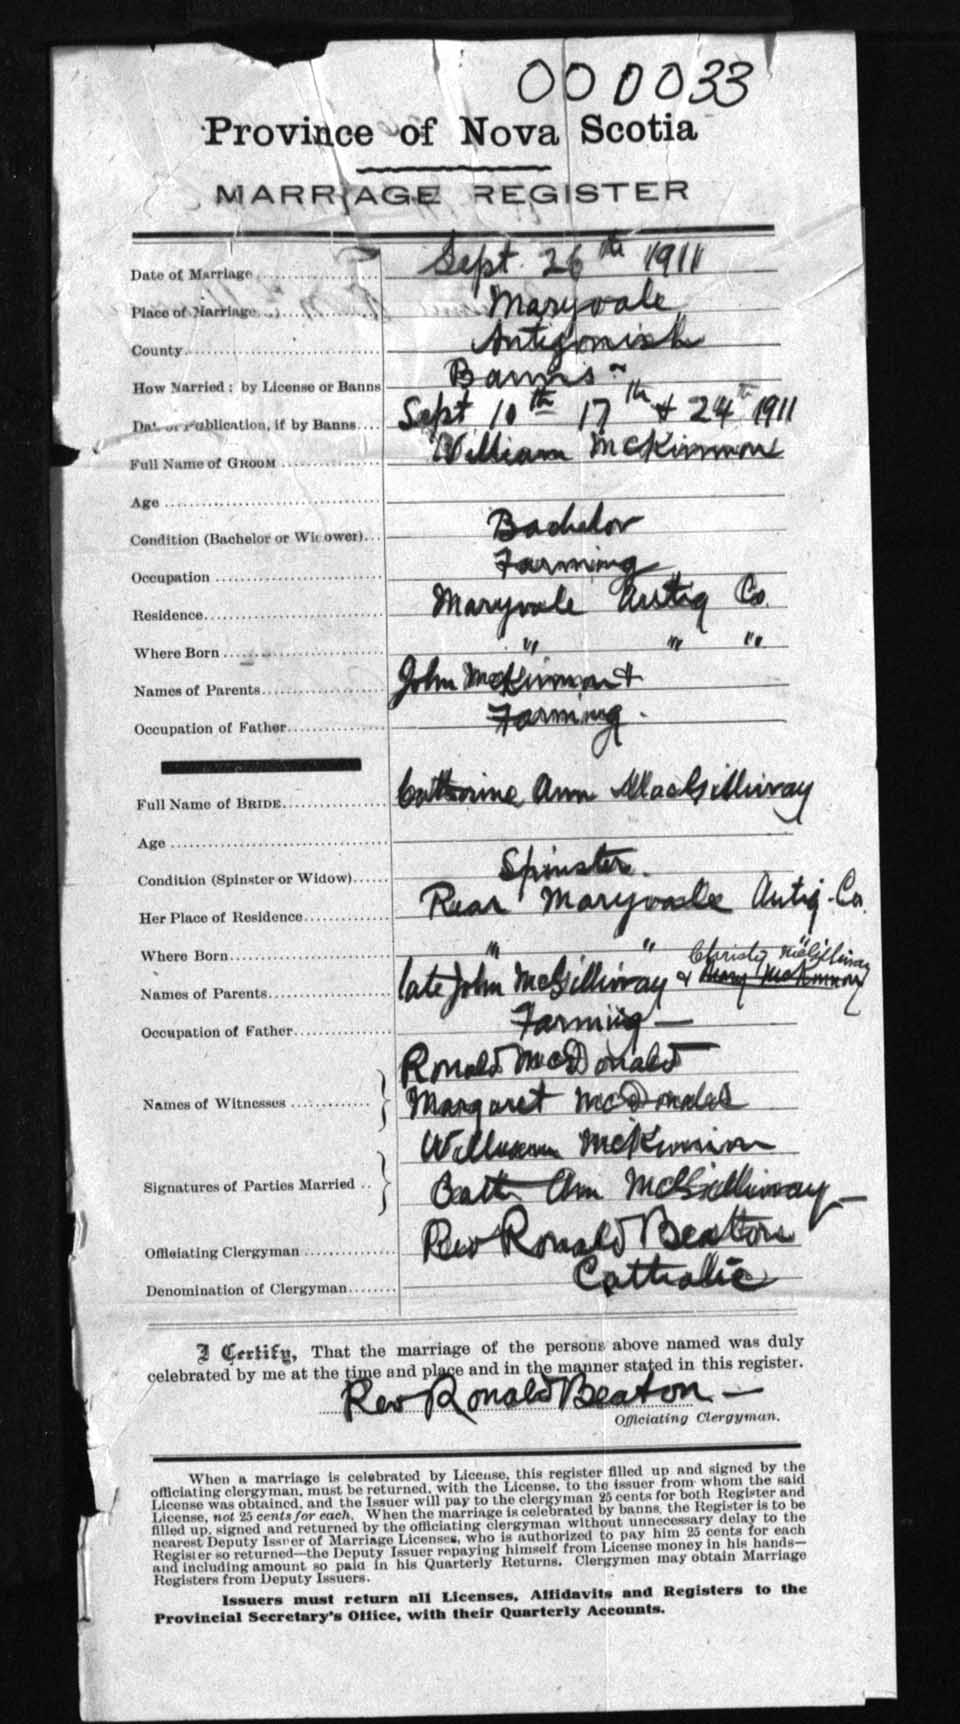 000033
Province of Nova Scotia
MARRIAGE REGISTER
Date of Marriage Sept. 26th 1911
Place of Marriage Maryvale
County Antigonish
How Married: by License or Banns Banns
Date of Publication, if by Banns Sept 10th 17th & 24th 1911
Full Name of GROOM William McKinnon
Age
Condition (Bachelor or Widower) Bachelor
Occupation Farming
Residence Maryvale Antig Co.
Where Born " " "
Names of Parents John McKinnon &
Occupation of Father Farming.
Full Name of BRIDE Catherine Ann MacGillivray
Age
Condition (Spinster or Widow) Spinster.
Her Place of Residence Rear Maryvale Antig. Co.
Where Born " " "
Christy McGillivray
Names of Parents late John McGillivray & Mary McKinnon
Occupation of Father Farming —
Ronald McDonald
Names of Witnesses Margaret McDonald
William McKinnon
Signatures of Parties Married Ann McGillivray —
Officiating Clergyman Rev Ronald Beaton
Denomination of Clergyman Catholic
I Certify, That the marriage of the persons above named was duly
celebrated by me at the time and place and in the manner stated in this register.
Rev Ronald Beaton —
Officiating Clergyman.
When a marriage is celebrated by License, this register filled up and signed by the
officiating clergyman, must be returned, with the License, to the issuer from whom the said
License was obtained, and the Issuer will pay to the clergyman 25 cents for both Register and
License, not 25 cents for each. When the marriage is celebrated by banns, the Register is to be
filled up, signed and returned by the officiating clergyman without unnecessary delay to the
nearest Deputy Issuer of Marriage Licenses, who is authorized to pay him 25 cents for each
Register so returned—the Deputy Issuer repaying himself from License money in his hands—
and including amount so paid in his Quarterly Returns. Clergymen may obtain Marriage
Registers from Deputy Issuers.
Issuers must return all Licenses, Affidavits and Registers to the
Provincial Secretary's Office, with their Quarterly Accounts.